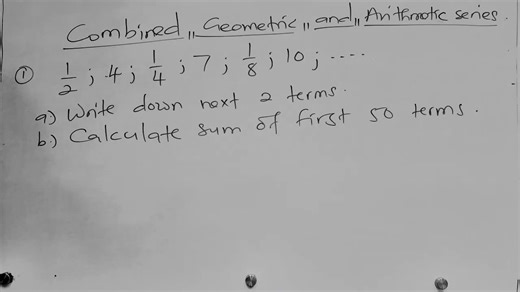 Combined ,, Geometric ,, and ,, Arithmetic series.
① 1/2 ; 4 ; 1/4 ; 7 ; 1/8 ; 10 ; ....
a) Write down next 2 terms.
b.) Calculate sum of first 50 terms.